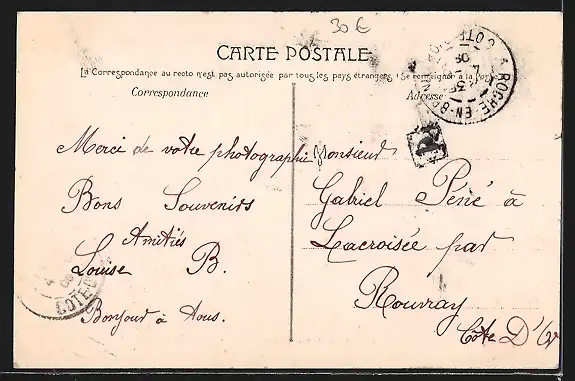 30 €
CARTE POSTALE
La Correspondance au recto n'est pas autorisée par tous les pays étrangers (Se renseigner à la Poste)
Correspondance
Adresse
LA ROCHE-EN-B
COTE
R
Merci de votre photographie
Bons Souvenirs
Amitiés
Louise B.
Bonjour à tous.
Monsieur
Gabriel Pené à
Lacroisée par
Rouvray
Côte D'Or
COTE